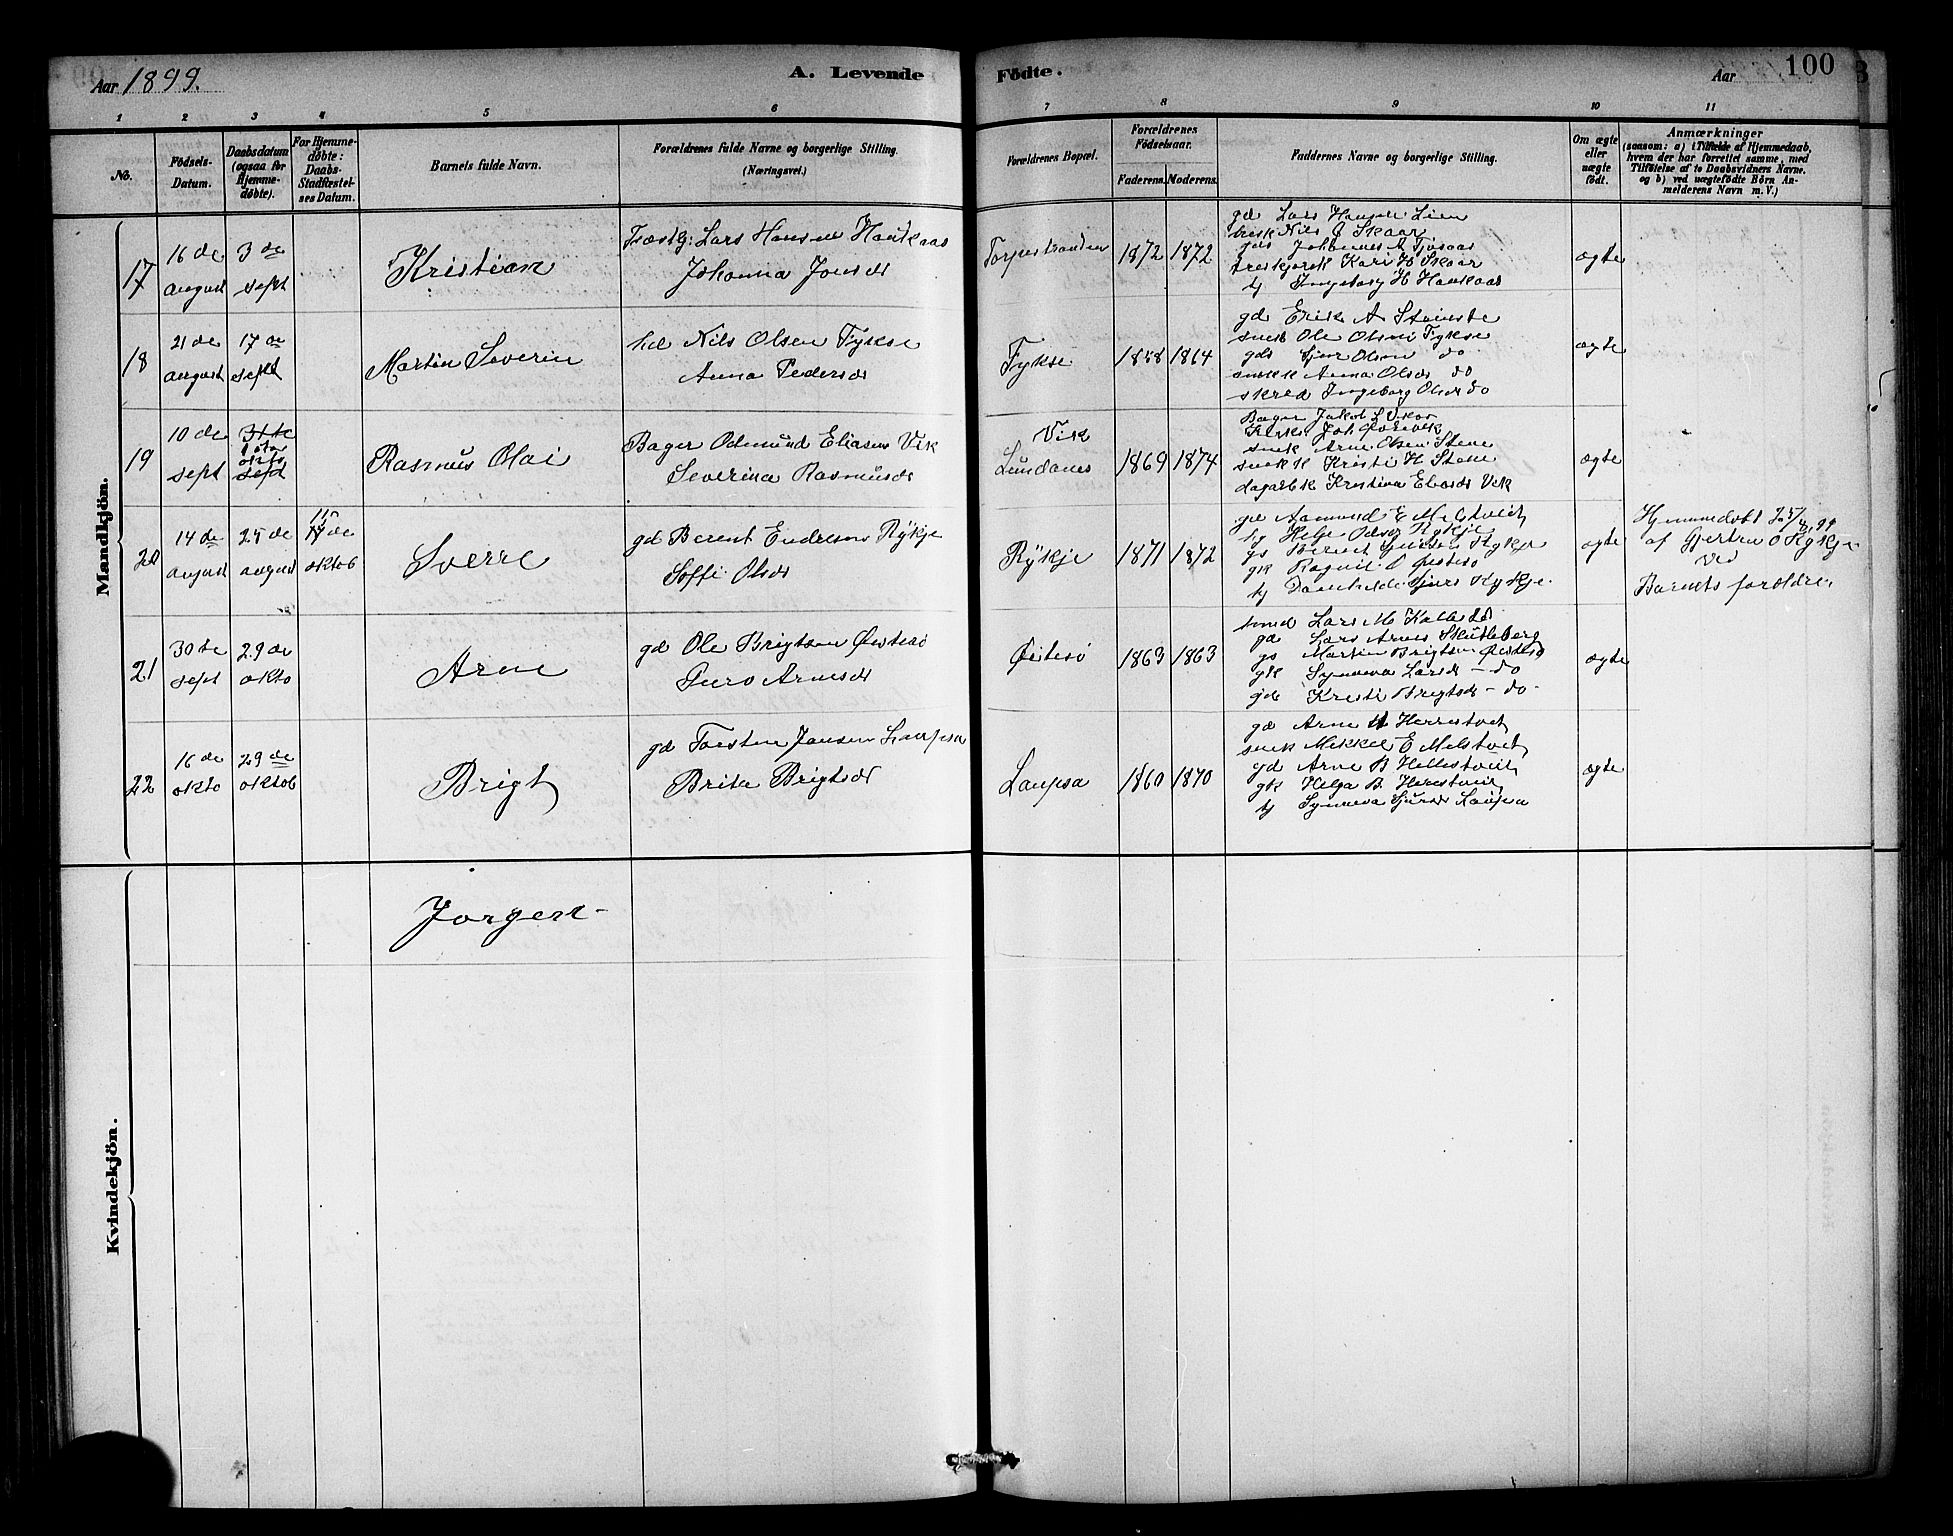 Aar 1899.
A. Levende Fødte.
Aar
100
1 2 3 4 5 6 7 8 9 10 11
No.
Fødsels-Datum.
Daabsdatum (ogsaa for Hjemme-døbte).
For Hjemme-døbte: Daabs-Stadfæstel-ses Datum.
Barnets fulde Navn.
Forældrenes fulde Navne og borgerlige Stilling.
(Næringsvei.)
Forældrenes Bopæl.
Forældrenes Fødselsaar.
Faderens. Moderens.
Faddernes Navne og borgerlige Stilling.
Om ægte eller uægte født.
Anmærkninger
(saasom: a) i Tilfælde af Hjemmedaab,
hvem der har forrettet samme, med
Tilføielse af to Daabsvidners Navne.
og b) ved uægtefødte Børn An-
melderens Navn m. V.)
Mandkjön.
17
16 de august
3 de sept
Kristian
Lars Hansen Haukaas
Johanna Jonsdr
1872 1872
gd Lars Hansen Lien
Nils J Skaar
Johannes A
Kari H Skaar
tj Ingeborg H Haukaas
ægte
18
21 de august
17 de sept
Martin Severin
hd Nils Olsen Fykse
Anna Pedersdr
Fykse
1858 1864
gd Erik A Steinstø
snedk Ole Olsen Fykse
gds Sjur Olsen do
snedk k Anna Olsdr do
skred Ingeborg Olsdr do
ægte
19
10 de sept
sept
Rasmus Olai
Bager Odmund Eliasen Vik
Severina Rasmusdr
Vik
Lundanes
1869 1874
Bager Jakob L Vikør
Joh Øvrevik
snek Arne Olsen Stene
snek k Kristi H Stene
dagarb k Kristina Eliasdr Vik
ægte
20
14 de august
25 de august
15 de oktob
Sverre
gd Berent Endresen Rykje
Soffi Olsdr
Rykje
1871 1872
gd Aamund E Melstveit
Helje Olsdr Rykje
gs Berent Rykje
gk Ragnil O Øistesø
tj Sjursd Rykje
ægte
Hjemmedøbt 25/8 99
af Gjertru O Rykje
ved
Barnets foreldre.
21
30 te sept
29 de okto
Arne
gd Ole Brigtsen Øistesø
Guro Arnesdr
Øistesø
1863 1863
Lars M
gd Lars Arnes Skutleberg
gs Martin Brigtsen Øistesø
gk Synneva Larsdr - do
gd Kristi Brigtsdr - do -
ægte
22
16 de okto
29 de oktob
Brigt
gd Torsten Jansen Laupsa
Brita Brigtsdr
Laupsa
1860 1870
gd Arne Herrestveit
snek Mikkel E Melstveit
gd Arne B Hellestveit
gk Helga B. Herestveit
tj Synneva Sjursdr Laupsa
ægte
Kvindekjön.
Jørgen -